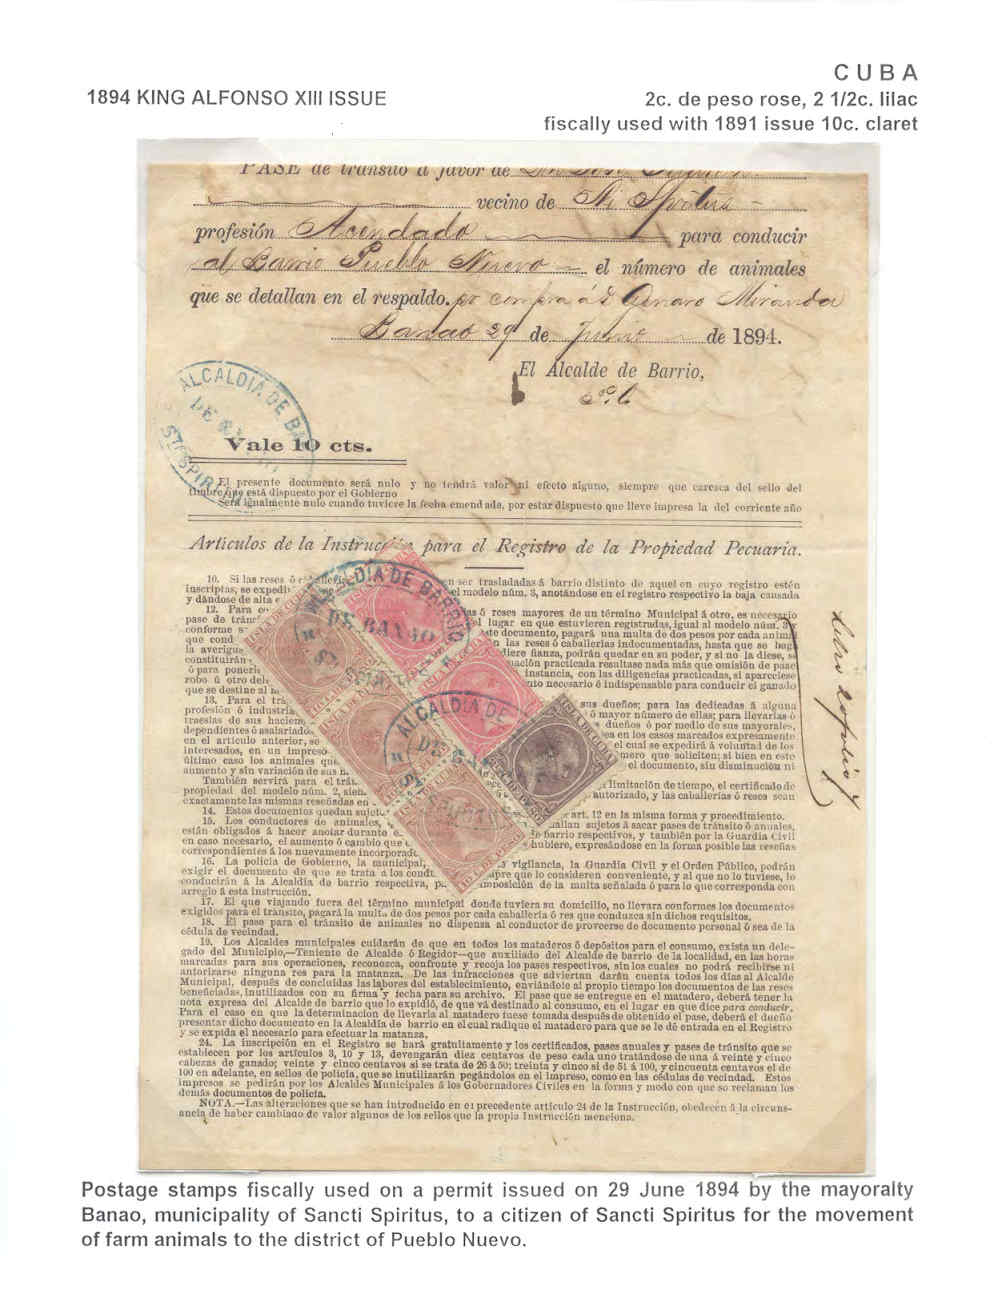 CUBA
1894 KING ALFONSO XIII ISSUE
2c. de peso rose, 2 1/2c. lilac
fiscally used with 1891 issue 10c. claret
PASE de tránsito á favor de
vecino de Sti Spiritus
profesión Acendado para conducir
al Barrio Pueblo Nuevo el número de animales
que se detallan en el respaldo. por compra á D Genaro Miranda
Banao 29 de Junio de 1894.
El Alcalde de Barrio,
ALCALDIA DE BA
STI SPIRI
Vale 10 cts.
El presente documento será nulo y no tendrá valor ni efecto alguno, siempre que caresca del sello del
timbre que está dispuesto por el Gobierno
Será igualmente nulo cuando tuviere la fecha emendada, por estar dispuesto que lleve impresa la del corriente año
Artículos de la Instrucción para el Registro de la Propiedad Pecuaria.
10. Si las reses ó en ser trasladadas á barrio distinto de aquel en cuyo registro estén
inscriptas, se expedi el modelo núm. 3, anotándose en el registro respectivo la baja causada
y dándose de alta
12. Para ó reses mayores de un término Municipal á otro, es necesario
pase de l lugar en que estuvieren registradas, igual al modelo núm. 3 y
conforme ste documento, pagará una multa de dos pesos por cada animal
que cond n las reses ó caballerías indocumentadas, hasta que se haga
la averigu diere fianza, podrán quedar en su poder, y si no la diese, se
constituirán uación practicada resultase nada más que omisión de pase
ó para poner instancia, con las diligencias practicadas, si apareciese
robo ú otro del nto necesario ó indispensable para conducir el ganado
que se destine al
13. Para el sus dueños; para las dedicadas á alguna
profesión ó industria ó mayor número de ellas; para llevarlas ó
traeslas de sus hacien dueños ó por medio de sus mayorales,
dependientes ó asalariado ea en los casos marcados expresamente
en el artículo anterior, se el cual se expedirá á voluntad de los
interesados, en un impreso mero que soliciten; si bien en este
último caso los animales que el documento, sin disminución ni
aumento y sin variación de sus
También servirá para el limitación de tiempo, el certificado de
propiedad del modelo núm. 2, sien autorizado, y las caballerías ó reses sean
exactamente las mismas reseñadas en
14. Estos documentos quedan sujet art. 12 en la misma forma y procedimiento.
15. Los conductores de animales, allan sujetos á sacar pases de tránsito ó anuales,
están obligados á hacer anotar durante e barrio respectivos, y también por la Guardia Civil
en caso necesario, el aumento ó cambio que hubiere, expresándose en la forma posible las reseñas
correspondientes á los nuevamente incorporado
16. La policía de Gobierno, la municipal, vigilancia, la Guardia Civil y el Orden Público, podrán
exigir el documento de que se trata á los condu pre que lo consideren conveniente, y al que no lo tuviese, lo
conducirán á la Alcaldía de barrio respectiva, pa imposición de la multa señalada ó para lo que corresponda con
arreglo á esta instrucción.
17. El que viajando fuera del término municipal donde tuviera su domicilio, no llevara conformes los documentos
exigidos para el tránsito, pagará la multa de dos pesos por cada caballería ó res que conduzca sin dichos requisitos.
18. El pase para el tránsito de animales no dispensa al conductor de proveerse de documento personal ó sea de la
cédula de vecindad.
19. Los Alcaldes municipales cuidarán de que en todos los mataderos ó depósitos para el consumo, exista un dele-
gado del Municipio,—Teniente de Alcalde ó Regidor—que auxiliado del Alcalde de barrio de la localidad, en las horas
marcadas para sus operaciones, reconozca, confronte y recoja los pases respectivos, sin los cuales no podrá recibirse ni
autorizarse ninguna res para la matanza. De las infracciones que adviertan darán cuenta todos los días al Alcalde
Municipal, después de concluidas las labores del establecimiento, enviándole al propio tiempo los documentos de las reses
beneficiadas, inutilizados con su firma y fecha para su archivo. El pase que se entregue en el matadero, deberá tener la
nota expresa del Alcalde de barrio que lo expidió, de que vá destinado al consumo, en el lugar en que dice para conducir.
Para el caso en que la determinacion de llevarla al matadero fuese tomada después de obtenido el pase, deberá el dueño
presentar dicho documento en la Alcaldía de barrio en el cual radique el matadero para que se le dé entrada en el Registro
y se expida el necesario para efectuar la matanza.
24. La inscripción en el Registro se hará gratuitamente y los certificados, pases anuales y pases de tránsito que se
establecen por los artículos 3, 10 y 13, devengarán diez centavos de peso cada uno tratándose de una á veinte y cinco
cabezas de ganado; veinte y cinco centavos si se trata de 26 á 50; treinta y cinco si de 51 á 100, y cincuenta centavos el de
100 en adelante, en sellos de policía, que se inutilizarán pegándolos en el impreso, como en las cédulas de vecindad. Estos
impresos se pedirán por los Alcaldes Municipales á los Gobernadores Civiles en la forma y modo con que se reclaman los
demás documentos de policía.
NOTA.—Las alteraciones que se han introducido en el precedente artículo 24 de la Instrucción, obedecen á la circuns-
ancia de haber cambiado de valor algunos de los sellos que la propia Instrucción menciona.
ALCALDIA DE BARRIO
DE BANAO
ALCALDIA DE
ISLA DE CUBA
Postage stamps fiscally used on a permit issued on 29 June 1894 by the mayoralty
Banao, municipality of Sancti Spiritus, to a citizen of Sancti Spiritus for the movement
of farm animals to the district of Pueblo Nuevo.